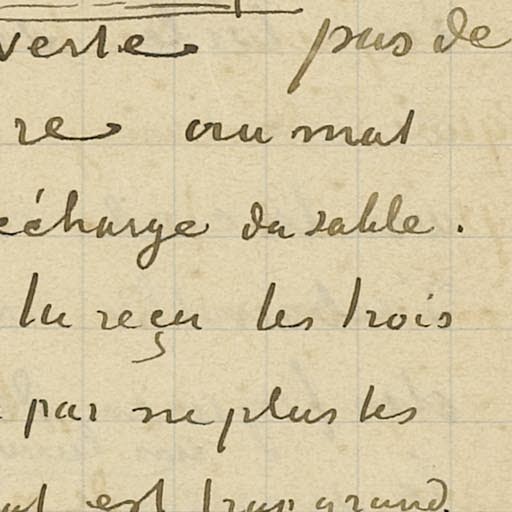 verte pas de
re au mat
écharge du sable.
tu reçu les trois
par ne plus les
est trop grand